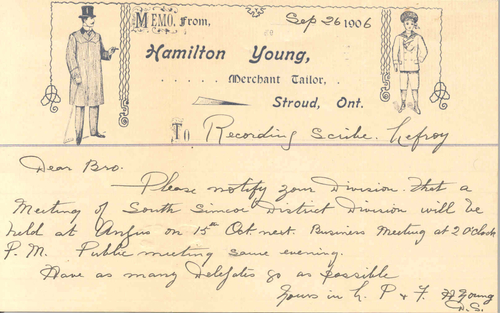 MEMO. From,
Sep 26 1906
Hamilton Young,
. . . . . Merchant Tailor, .
Stroud, Ont.
To Recording Scribe. Lefroy
Dear Bro.
Please notify your Division that a
Meeting of South Simcoe District Division will be
held at Angus on 15th Oct. next. Business Meeting at 2 O'clock
P. M. Public meeting same evening.
Have as many Delegates go as possible
Yours in L. P & F. H Young
D. S.